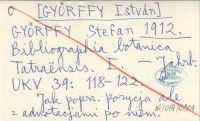 [GYÖRFFY István]
GYÖRFFY Stefan 1912.
Bibliographia botanica
Tatraënsis. I. – Jahrb.
UKV 39: 118-122.
Jak poprz. pozycja ale
z adnotacjami po niem.